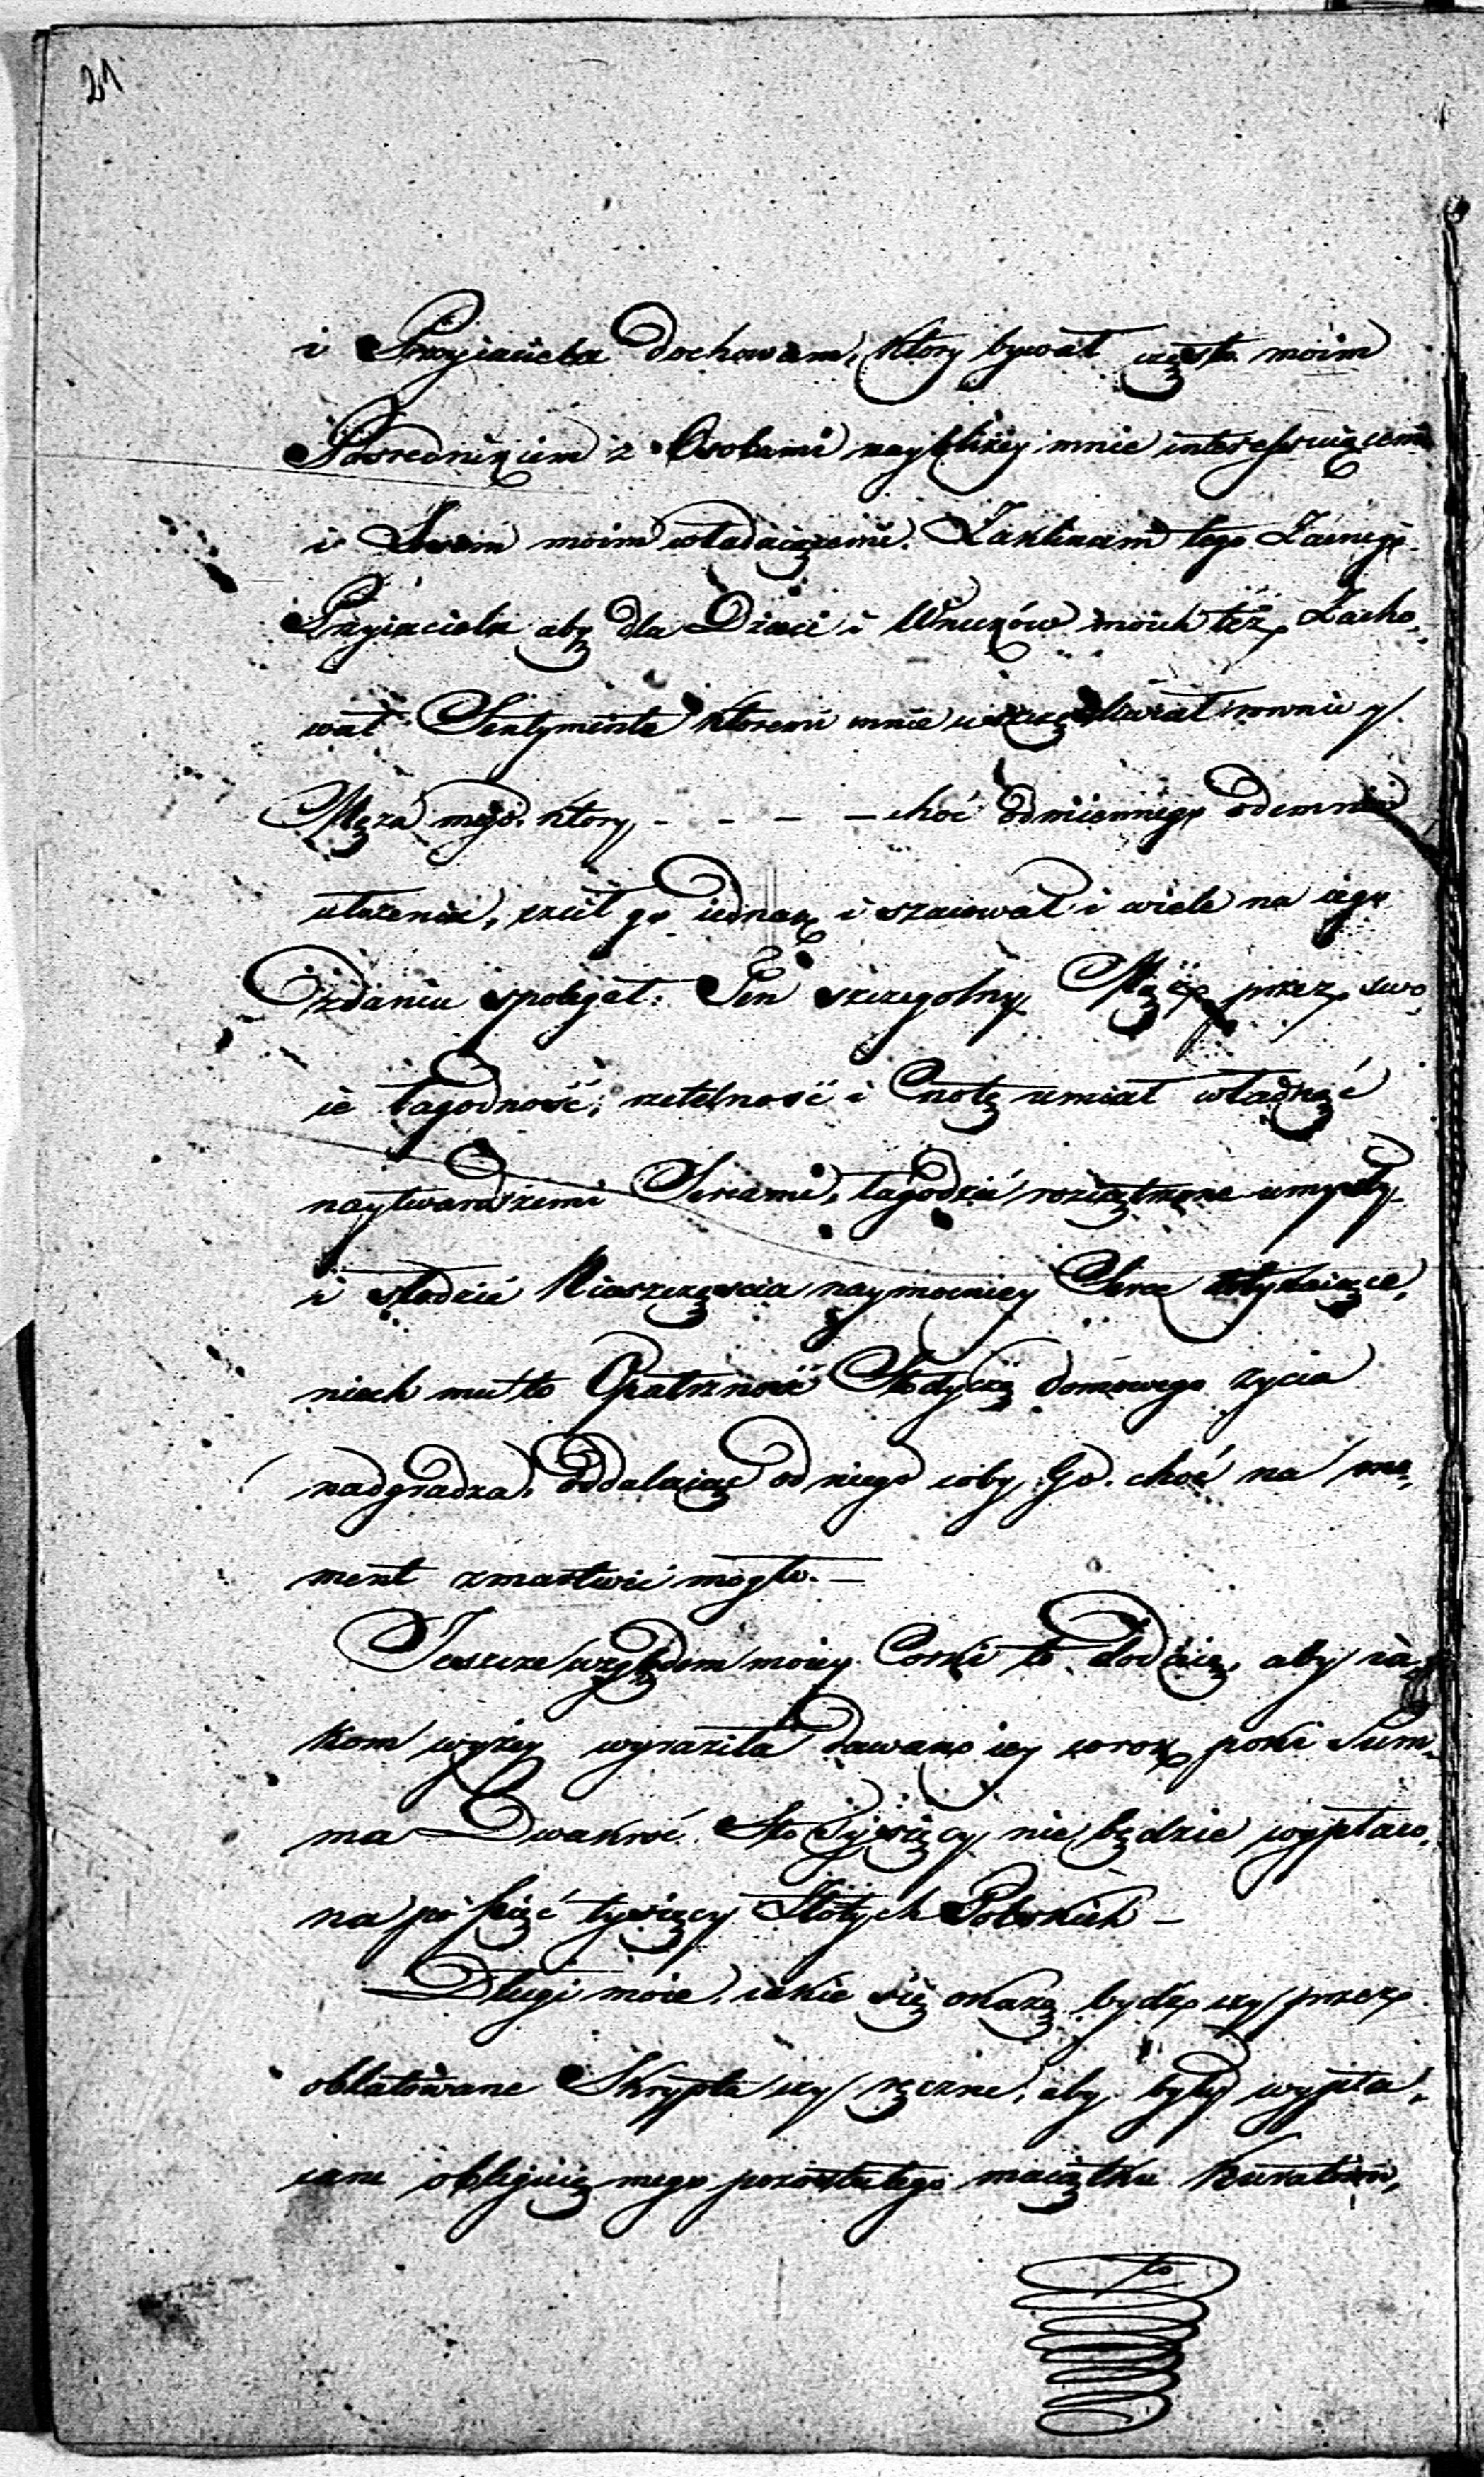 21
i Przyjaciela dochowam, ktory bywał często moim
Posrednikiem z Osobami naybliżey mnie interessuiącemi
i Sercem moim władaiącemi. Zaklinam tego Zacnego
Przyiaciela aby dla Dzieci i Wnuków moich też Zacho„
wał Sentymenta ktoremi mnie uszczęśliwiał rownie y
Męża mego, ktory - - - - choć odmiennego odemnie
ułożenia, czcił go iednak i szacował i wiele na iego
zdaniu spolegał. Ten szczegolny Mąż przez swo„
ię łagodność, rzetelność i Cnotę umiał władnąć
naytwardszemi Sercami, łagodzić roziątrzone umysły
i słodzić Nieszczęścia naymocniey Serce dotykaiące,
niech mu to Opatrzność Słodyczą domowego życia
nadgradza, oddalaiąc od niego coby Go choć na mo„
ment zmartwić mogło. —
Jeszcze względem moiey Corki to dodaię, aby ia„
kom wyżey wyraziła dawano iey corok poki Sum„
ma Dwakroć Sto Tysięcy nie będzie wypłaco„
na po pięć tysięcy Złotych Polskich —
Długi moie, iakie się okażą bydź czy przez
oblatowane Skrypta czy ręczne, aby były wypła„
cane obliguię mego pozostałego maiątku Kuratorów,
to